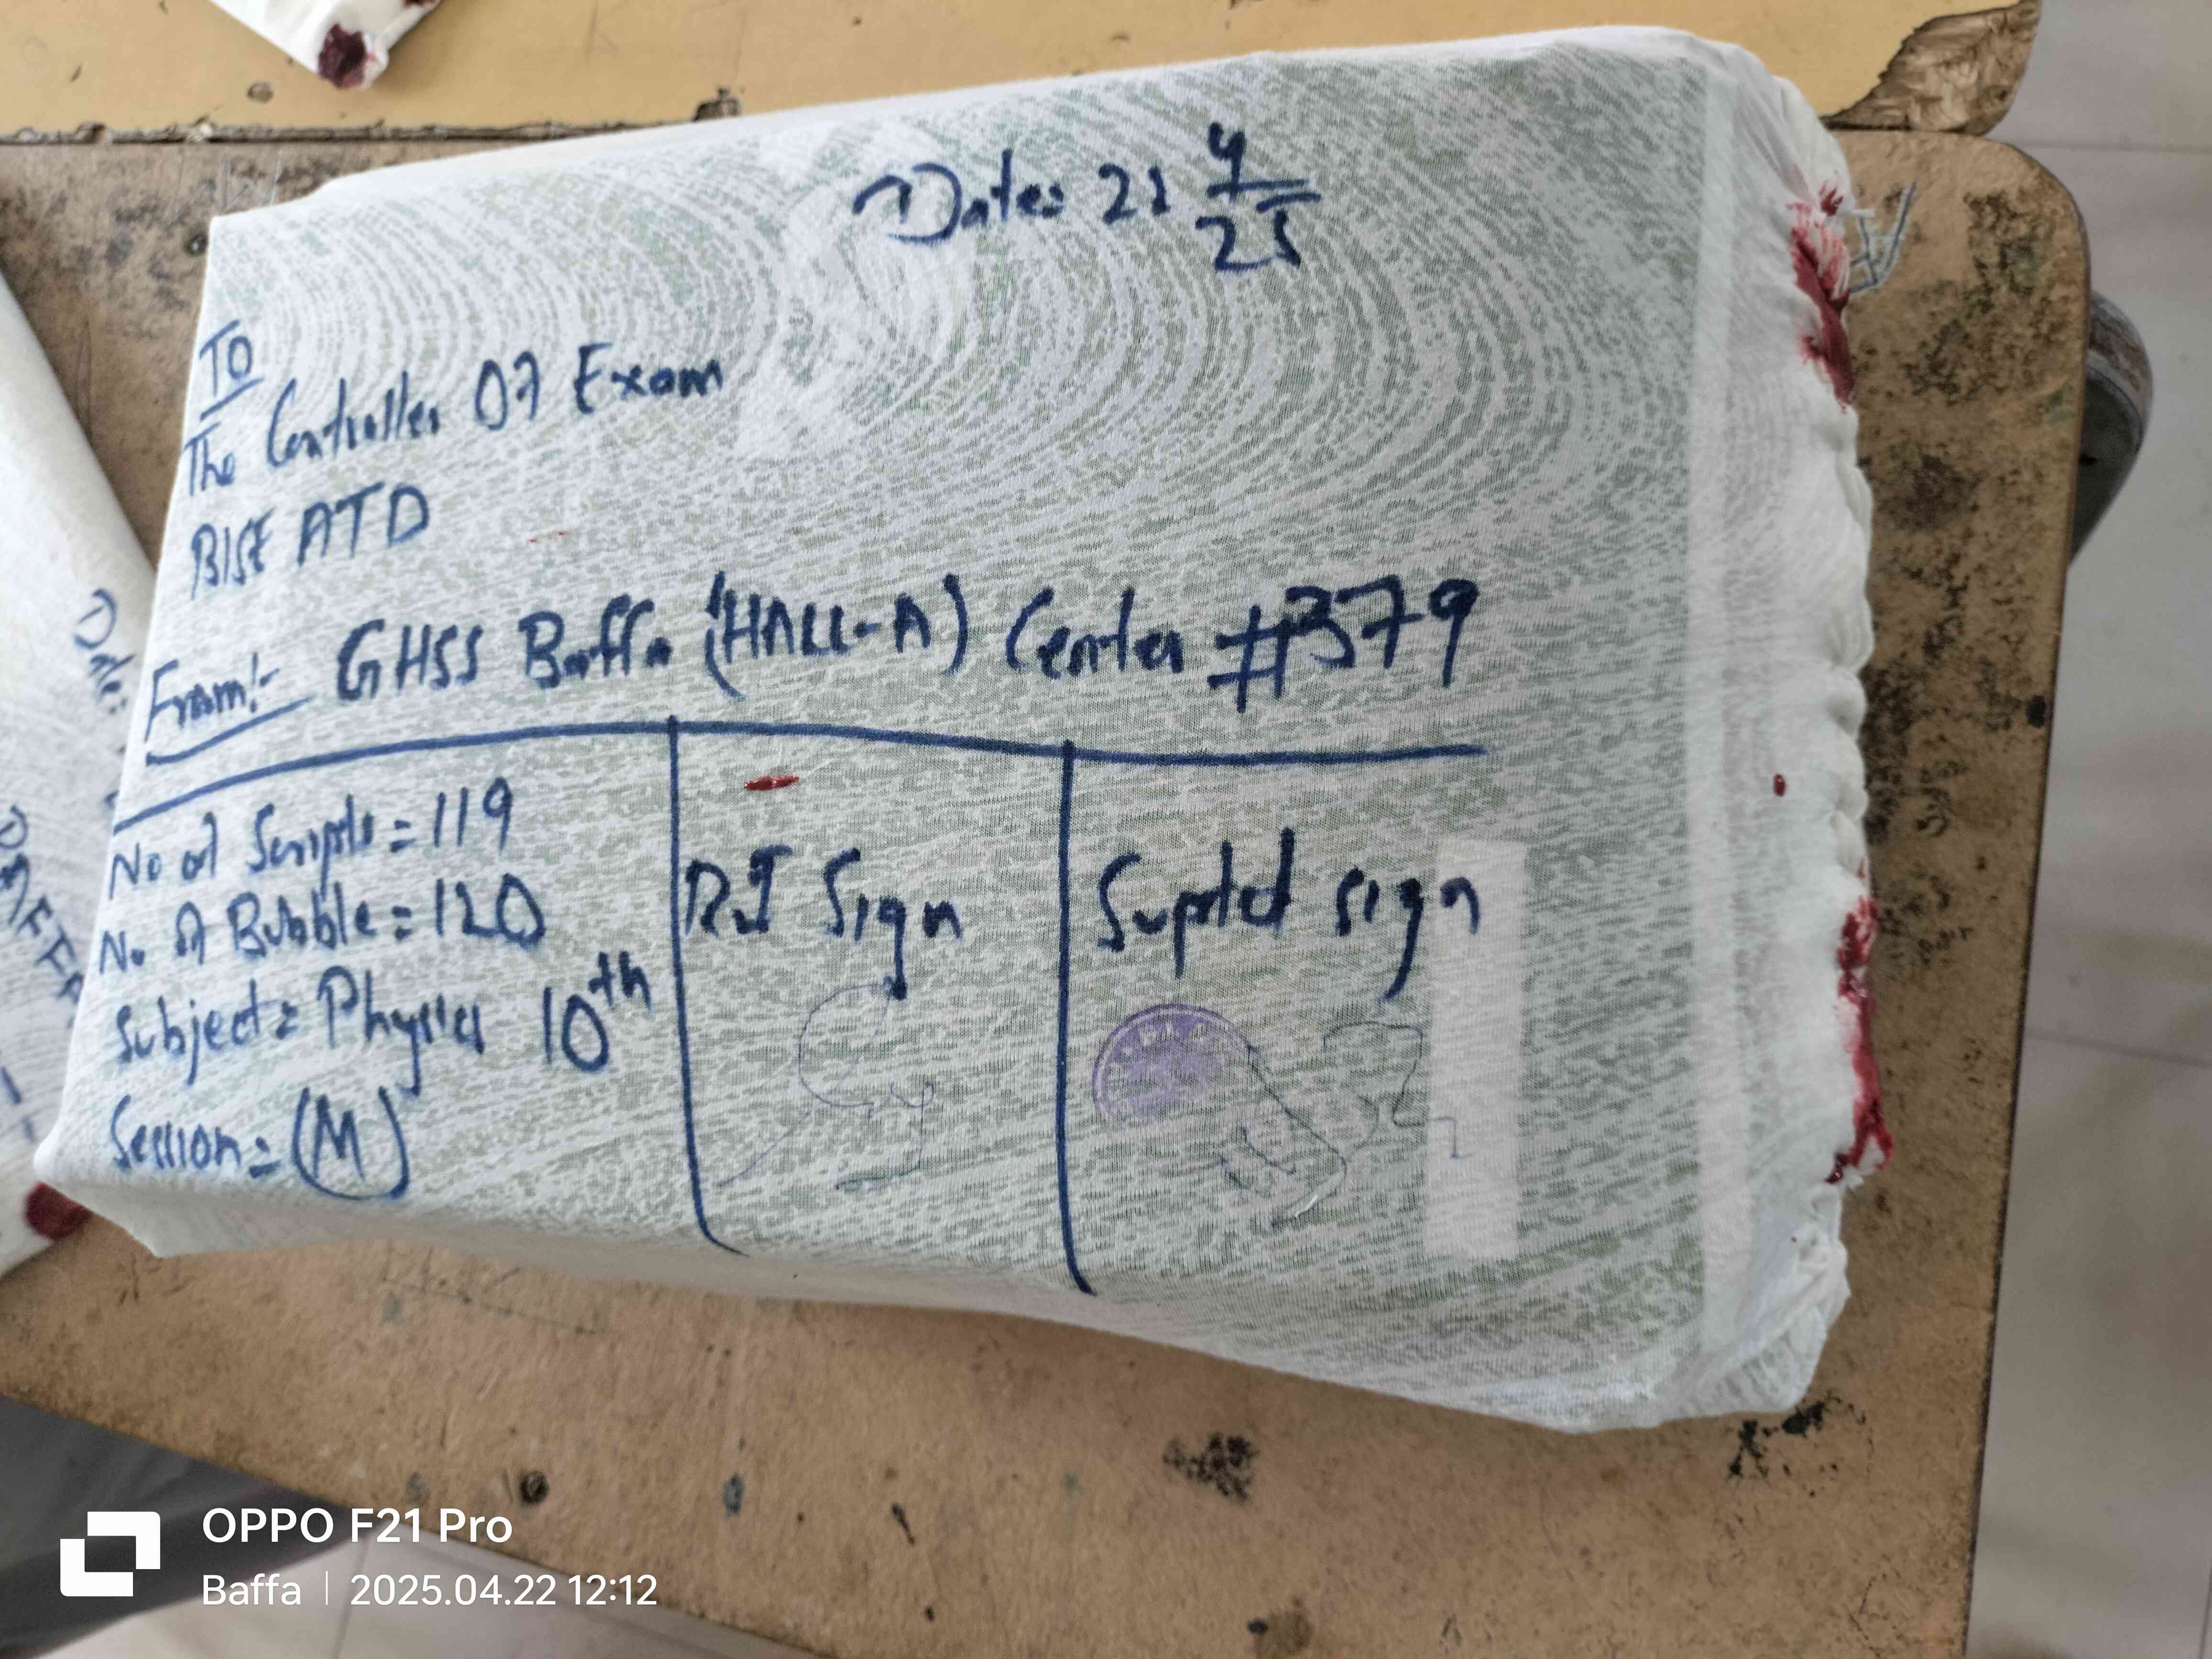 Date: 22 4/25
TO
The Controller Of Exam
BISE ATD
From:- GHSS Baffa (HALL-A) Center #379
No of Script = 119
No of Bubble = 120
Subject = Physics 10th
Session = (M)
RI Sign
Suptdt sign
Date:
OPPO F21 Pro
Baffa | 2025.04.22 12:12